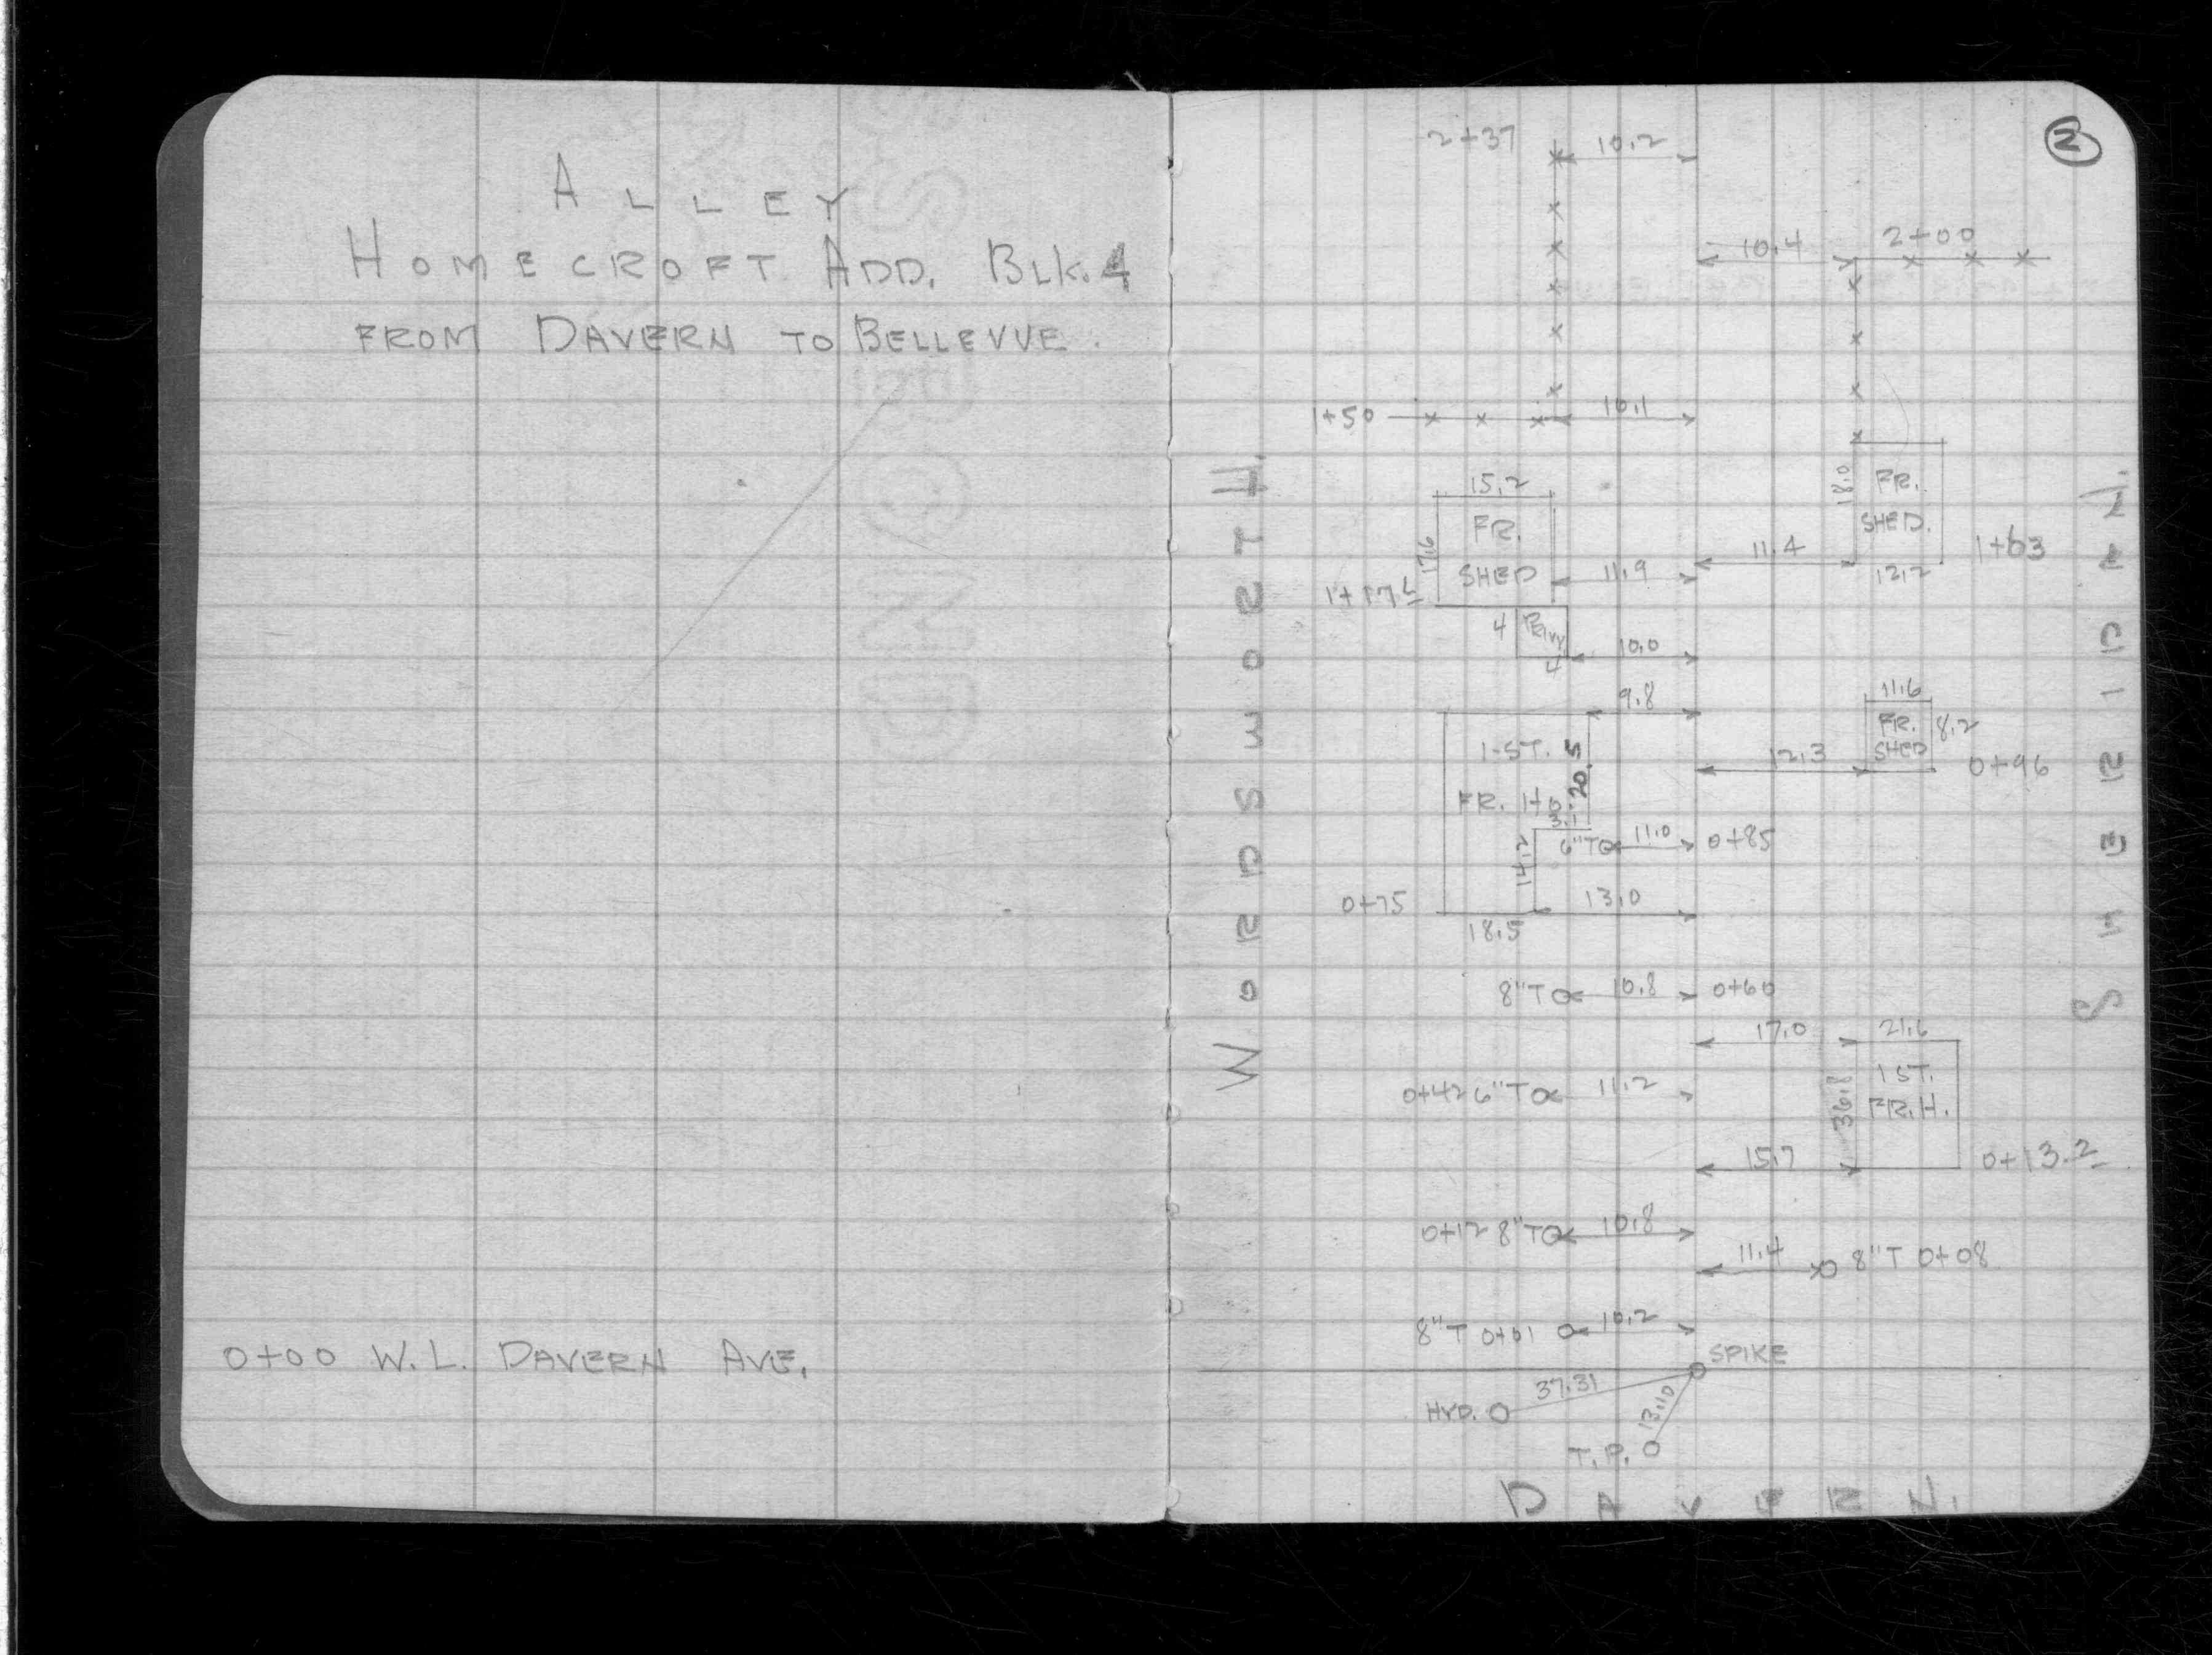 ALLEY
HOMECROFT ADD. BLK. 4
FROM DAVERN TO BELLEVUE.
0+00 W.L. DAVERN AVE.
2
2+37
10.2
10.4
2+00
1+50
10.1
15.2
FR.
SHED
17.6
11.9
18.0
FR.
SHED.
11.4
12.2
1+63
4
PRIVY
4
10.0
9.8
1-ST.
FR. H
20.5
3.1
11.6
FR.
SHED
8.2
12.3
0+96
6"T
11.0
0+85
14.2
0+75
13.0
18.5
8"T
10.8
0+60
17.0
21.6
1 ST.
FR. H.
36.8
0+42 6"T
11.2
15.7
0+13.2
0+12 8"T
10.8
11.4
8"T 0+08
8"T 0+01
10.2
SPIKE
37.31
HYD.
13.10
T.P.
DAVERN.
WORDSMORTH.